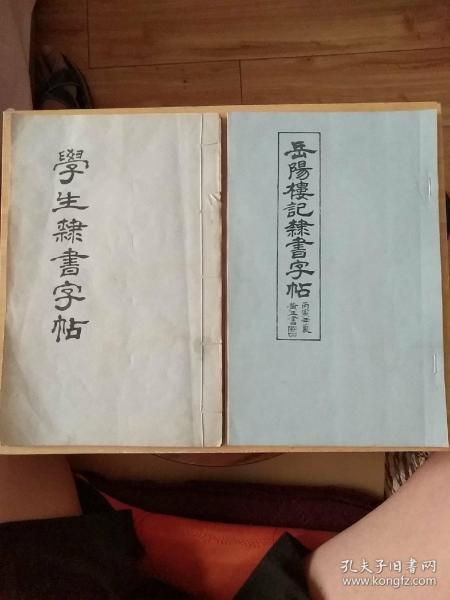 學生隸書字帖
岳陽樓記隸書字帖
孔夫子旧书网
www.kongfz.com